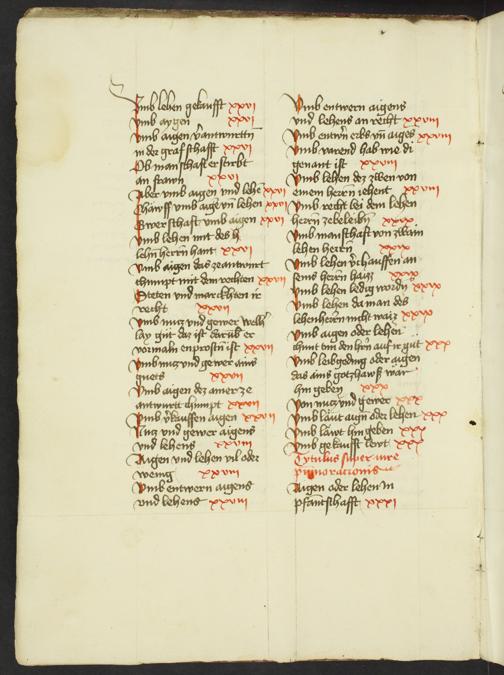 Umb lehen gekaufft xxvi
Umb aygen xxvi
Umb aigen v̈antwurttn̄
in der grafschafft xxvi
Ob manschaft erstirbt
an frawn xxvi
Aber umb aigen vnd lehē xxvi
Chawff umb aigē vn̄ lehen xxvi
Gwerschafft umb aigen xxvi
Umb lehen mit des h
lehn herrn hant xxvi
Umb aigen das zeantwurt
chumpt mit den rechten xxvii
Steten vnd marckhten ir
recht xxvii
Umb nucz vnd gewer
lay gut daz ist darub er
vormaln enprostn̄ ist xxvii
Umb nucz vnd gewer ains
guets xxvii
Umb aigen dez amer ze
antwurtt chumpt xxvii
Umb v̈kauffen aigen xxvii
Nucz vnd gewer aigens
vnd lehens xxviii
Aigen vnd lehen vil oder
wenig xxviii
Umb entwern aigens
vnd lehens xxviii
Umb entwern aigens
vnd lehens an recht xxviii
Umb entwn̄ erbs vn̄ aiges xxviii
Umb varend hab wie di
genant ist xxviii
Umb lehen dez ziben von
einem herrn iehent xxviii
Umb recht bei dem lehen
herrn zebeleibn̄ xxix
Umb manschaft von zwain
lehen herrn xxix
Umb lehen v̈chauffen an
seins herrn haiz xxix
Umb lehen ledig wordn̄ xxix
Umb lehen da man des
lehenherrn nicht waiz xxix
Umb aigen oder lehen
chumt ein den hrn̄ auf ir gut xxx
Umb leibgeding oder aigen
das ains gotzhawß war
hin geben xxx
Von nucz vnd gewer xxx
Umb läut aign̄ oder lehen xxx
Umb läwt hin geben xxx
Umb gekaufft xxx
Tytulus super iure
pignoracionis
Aigen oder lehen in
pfantschafft xxxi